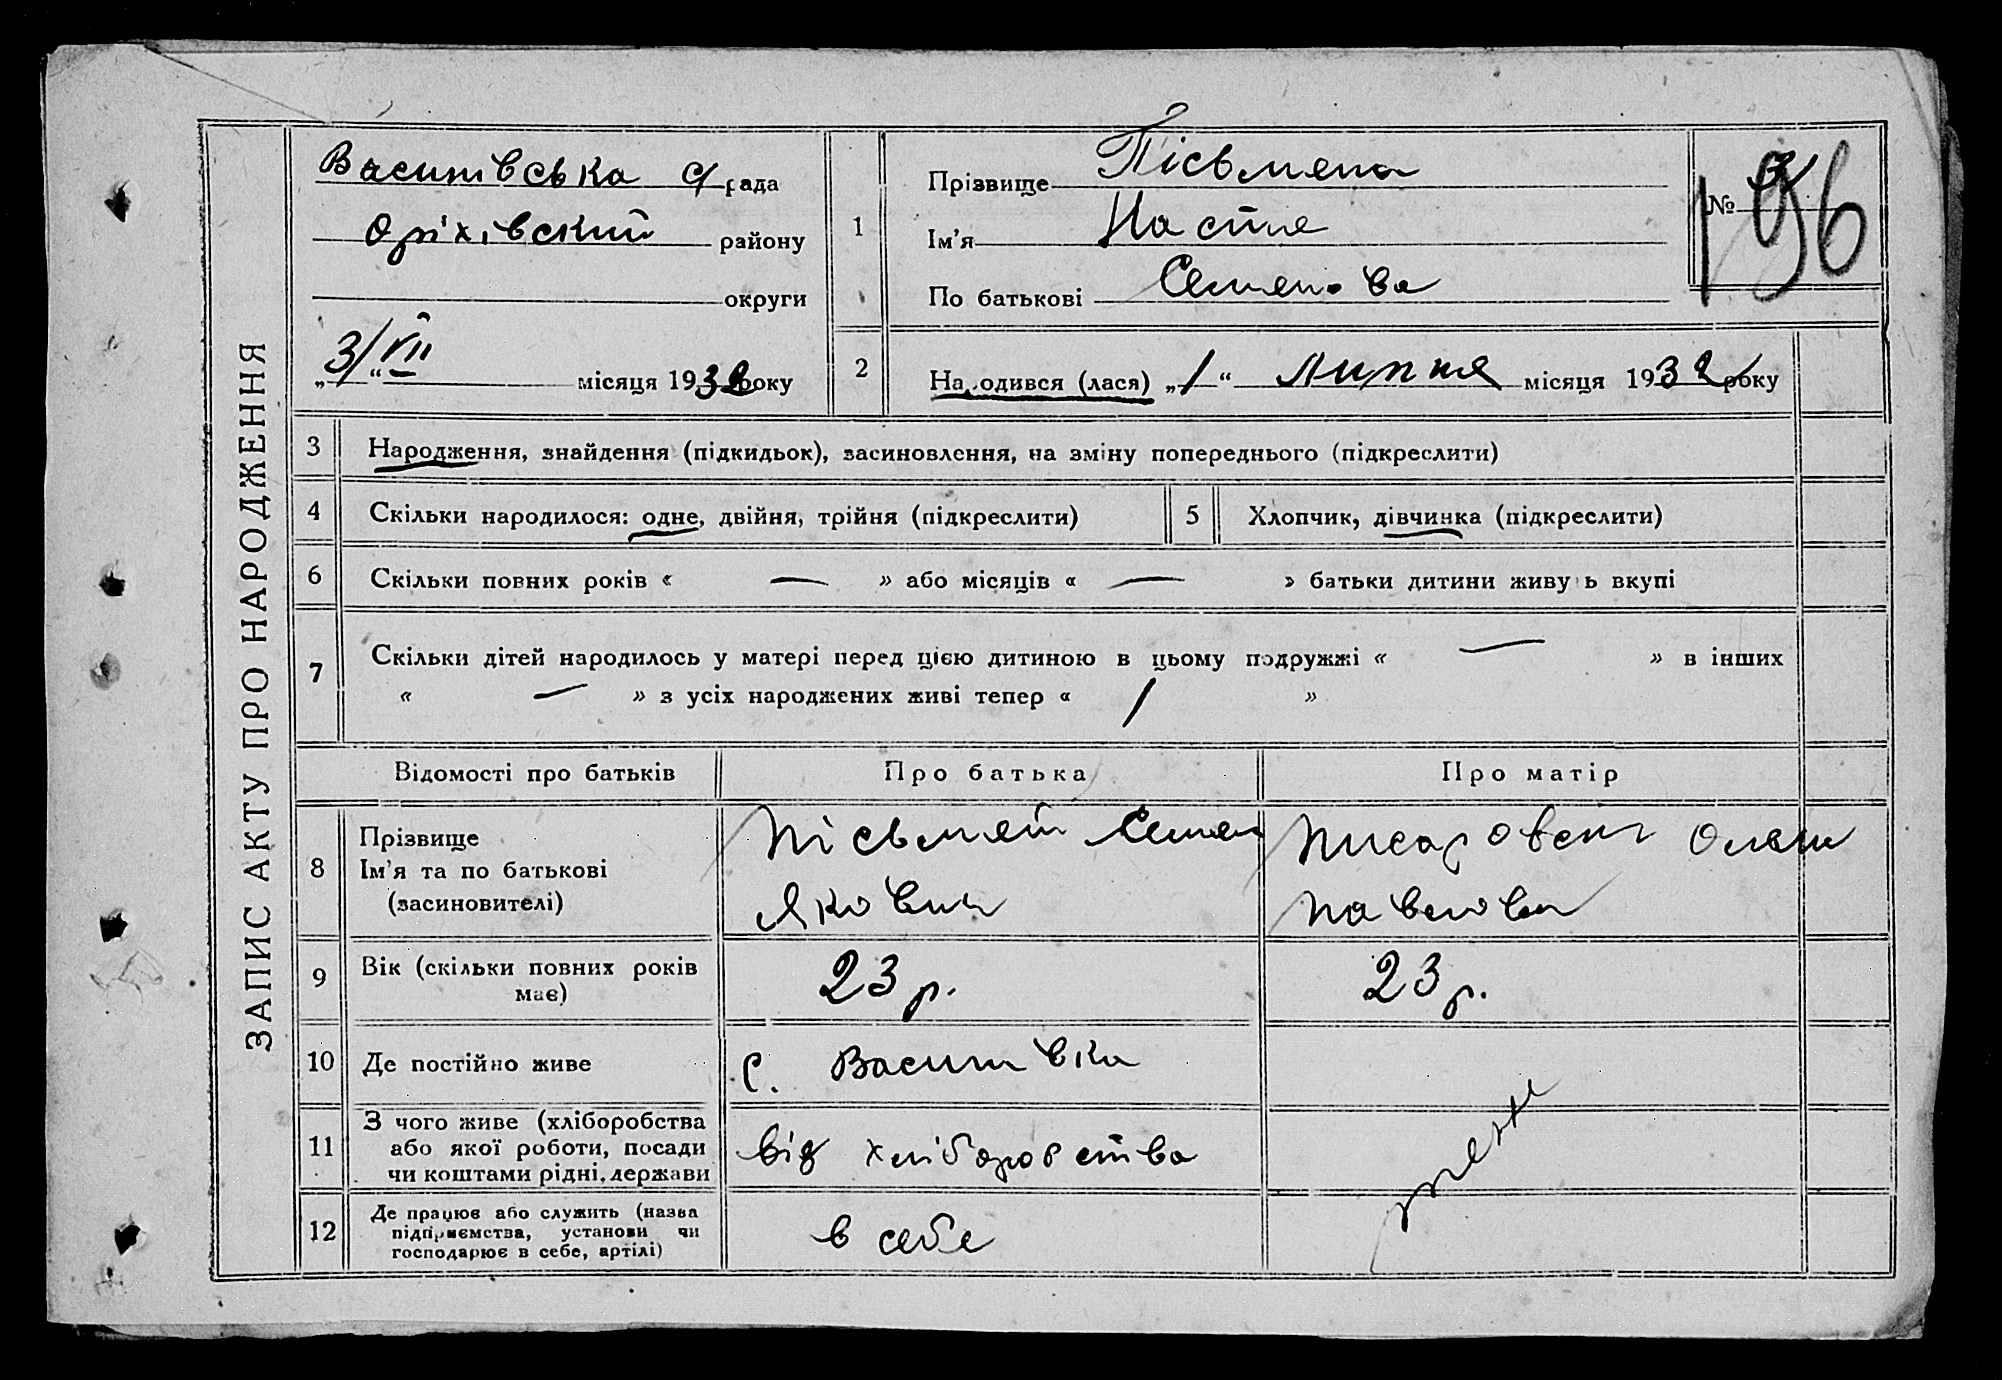 ЗАПИС АКТУ ПРО НАРОДЖЕННЯ
Василівська с/рада
Оріхівский району
округи
„3/“ VII місяця 1932 року
1 Прізвище Пісьмена
Ім’я Настя
По батькові Семенова
№ 96
2 Народився (лася) „1“ Липня місяця 1932 року
3 Народження, знайдення (підкидьок), засиновлення, на зміну попереднього (підкреслити)
4 Скільки народилося: одне, двійня, трійня (підкреслити) 5 Хлопчик, дівчинка (підкреслити)
6 Скільки повних років « — » або місяців « — » батьки дитини живуть вкупі
7 Скільки дітей народилось у матері перед цією дитиною в цьому подружжі « — » в інших
« — » з усіх народжених живі тепер « 1 »
Відомості про батьків Про батька Про матір
8 Прізвище
Ім’я та по батькові
(засиновителі)
Пісьмен Семен
Якович
Писаровска Ольга
Павлова
9 Вік (скільки повних років
має)
23 р. 23 р.
10 Де постійно живе с. Василівка
11 З чого живе (хліборобства
або якої роботи, посади
чи коштами рідні, держави
від хліборобства
12 Де працює або служить (назва
підприємства, установи чи
господарює в себе, артілі)
в себе
теж